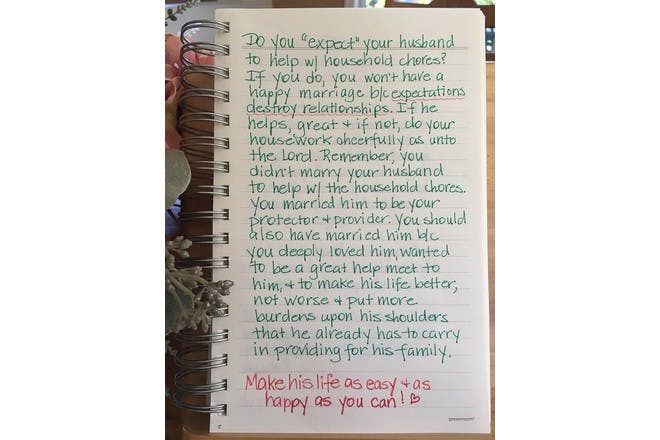 Do you "expect" your husband
to help w/ household chores?
If you do, you won't have a
happy marriage b/c expectations
destroy relationships. If he
helps, great + if not, do your
housework cheerfully as unto
the Lord. Remember, you
didn't marry your husband
to help w/ the household chores.
You married him to be your
protector + provider. You should
also have married him b/c
you deeply loved him, wanted
to be a great help meet to
him, + to make his life better,
not worse + put more
burdens upon his shoulders
that he already has to carry
in providing for his family.
Make his life as easy + as
happy as you can! ♡